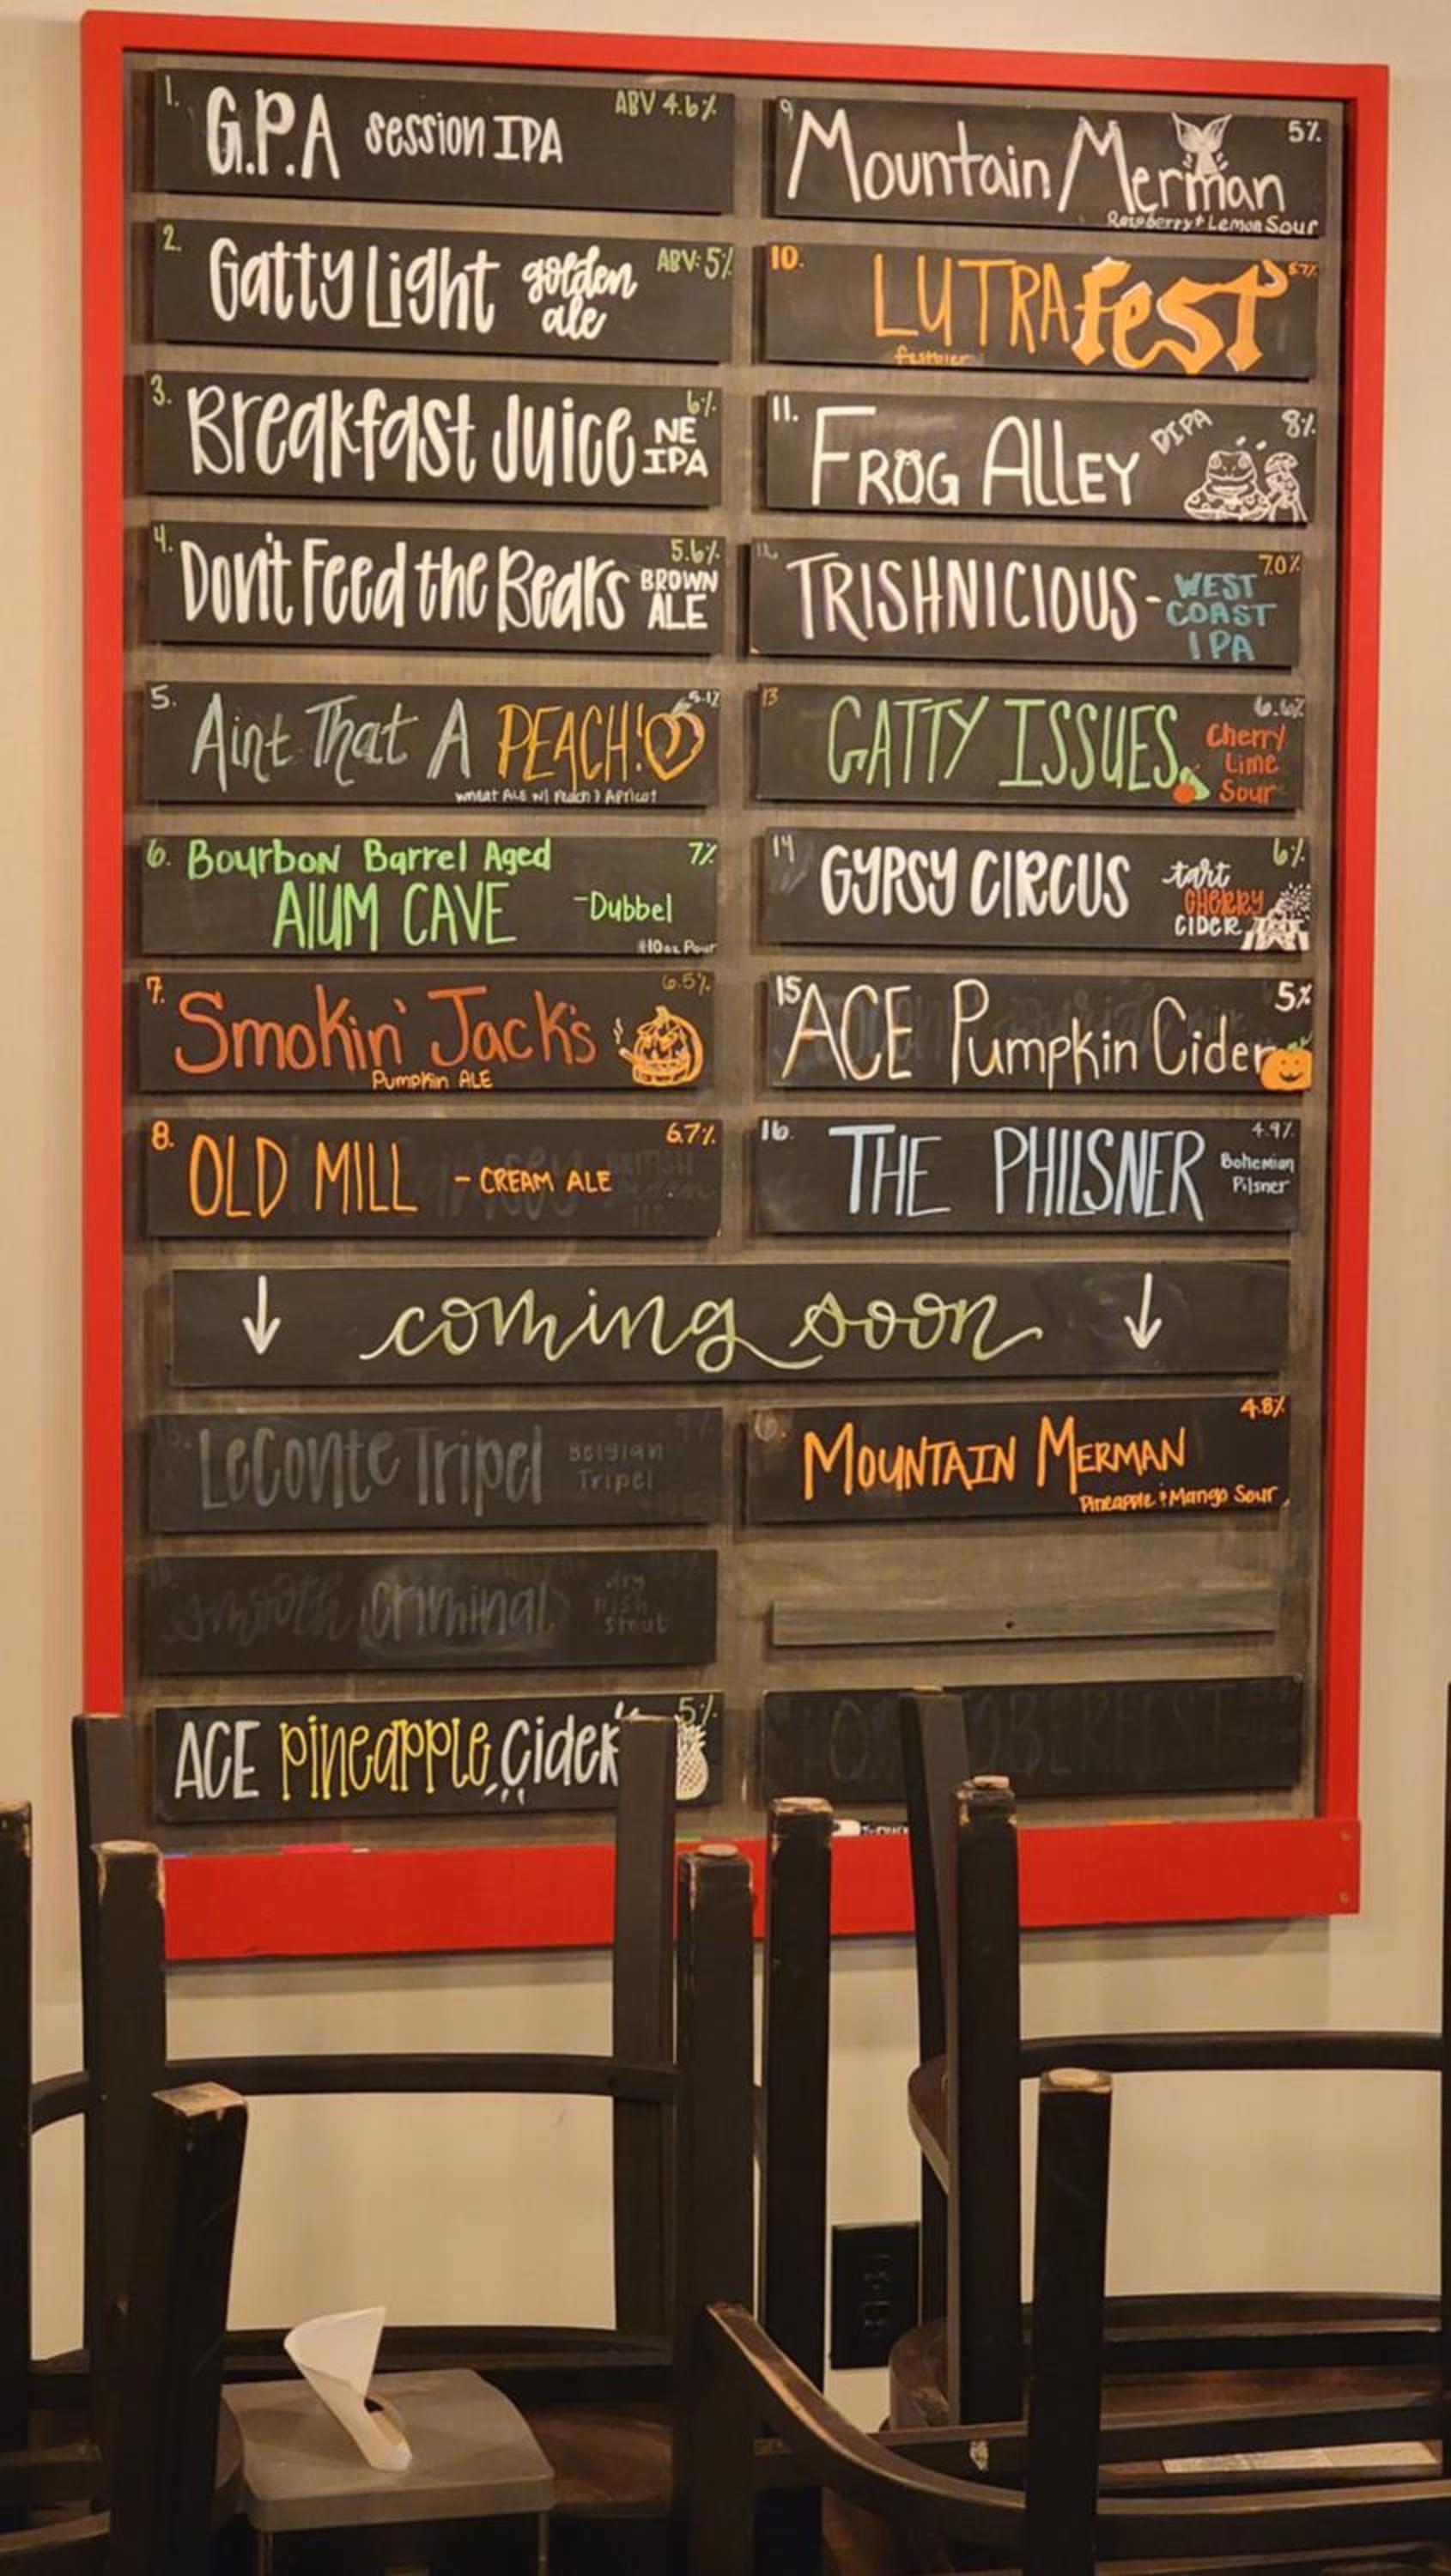 1. G.P.A session IPA ABV 4.6%
2. Gatty Light golden ale ABV: 5%
3. Breakfast Juice NE IPA 6%
4. Don't Feed the Bears BROWN ALE 5.6%
5. Aint That A PEACH!
Wheat ALE w/ Peach & Apricot
6. Bourbon Barrel Aged 7%
AlUM CAVE -Dubbel
*10oz Pour
7. Smokin' Jack's 6.5%
Pumpkin ALE
8. OLD MILL - CREAM ALE 6.7%
9 Mountain Merman 5%
Raspberry + Lemon Sour
10. LUTRAfest
festbier
11. FROG ALLEY DIPA 8%
12. TRISHNICIOUS - WEST COAST IPA 7.0%
13 GATTY ISSUES Cherry Lime Sour 6.6%
14 GYPSY CIRCUS tart CHERRY CIDER 6%
15 ACE Pumpkin Cider 5%
16. THE PHILSNER 4.9%
Bohemian Pilsner
↓ coming soon ↓
LeConte Tripel Belgian Tripel
smooth criminal dry Irish Stout
ACE pineapple Cider 5%
MOUNTAIN MERMAN 4.8%
Pineapple & Mango Sour